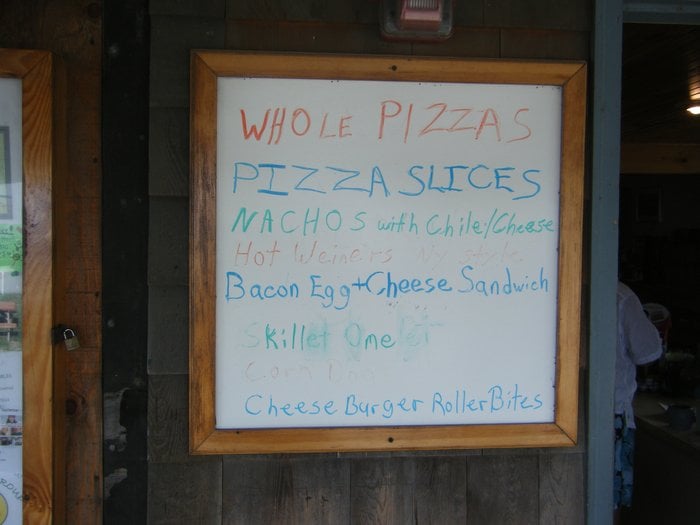 WHOLE PIZZAS
PIZZA SLICES
NACHOS with Chile/Cheese
Hot Weiners Ny style
Bacon Egg+Cheese Sandwich
Skillet Omelet
Corn Dog
Cheese Burger Roller Bites